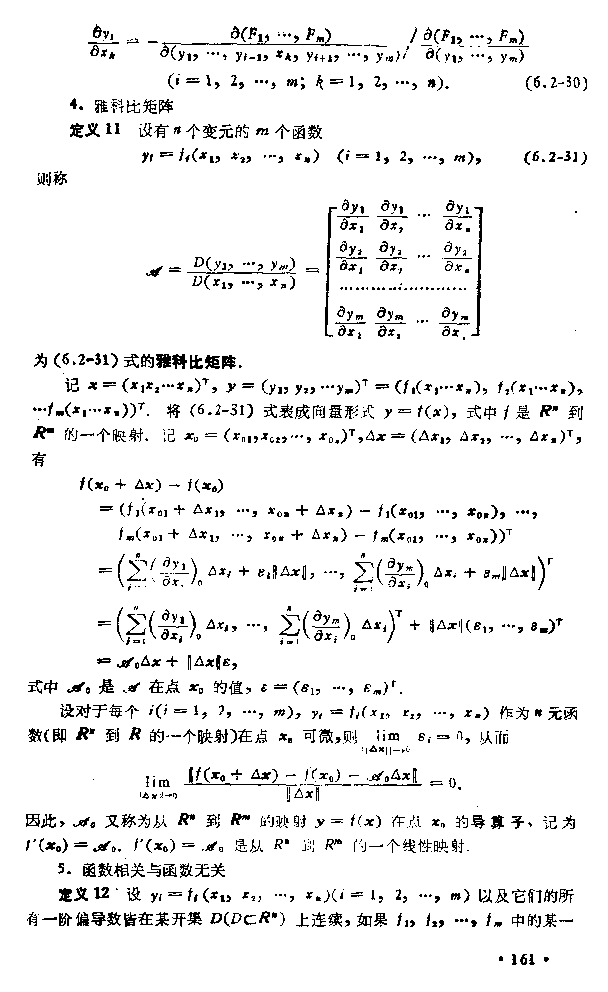 ∂yᵢ/∂xₖ = − ∂(F₁, ⋯, Fₘ)/∂(y₁, ⋯, yᵢ₋₁, xₖ, yᵢ₊₁, ⋯, yₘ) / ∂(F₁, ⋯, Fₘ)/∂(y₁, ⋯, yₘ)
(i = 1, 2, ⋯, m; k = 1, 2, ⋯, n). (6.2-30)
4. 雅科比矩阵
定义11 设有 n 个变元的 m 个函数
yᵢ = fᵢ(x₁, x₂, ⋯, xₙ) (i = 1, 2, ⋯, m), (6.2-31)
则称
𝒜 = D(y₁, ⋯, yₘ)/D(x₁, ⋯, xₙ) = [∂y₁/∂x₁ ∂y₁/∂x₂ ⋯ ∂y₁/∂xₙ
∂y₂/∂x₁ ∂y₂/∂x₂ ⋯ ∂y₂/∂xₙ
⋯⋯⋯⋯⋯⋯
∂yₘ/∂x₁ ∂yₘ/∂x₂ ⋯ ∂yₘ/∂xₙ]
为 (6.2-31) 式的雅科比矩阵.
记 x = (x₁x₂⋯xₙ)ᵀ, y = (y₁, y₂, ⋯yₘ)ᵀ = (f₁(x₁⋯xₙ), f₂(x₁⋯xₙ),
⋯fₘ(x₁⋯xₙ))ᵀ. 将 (6.2-31) 式表成向量形式 y = f(x), 式中 f 是 Rⁿ 到
Rᵐ 的一个映射. 记 x₀ = (x₀₁, x₀₂, ⋯, x₀ₙ)ᵀ, Δx = (Δx₁, Δx₂, ⋯, Δxₙ)ᵀ,
有
f(x₀ + Δx) − f(x₀)
= (f₁(x₀₁ + Δx₁, ⋯, x₀ₙ + Δxₙ) − f₁(x₀₁, ⋯, x₀ₙ), ⋯,
fₘ(x₀₁ + Δx₁, ⋯, x₀ₙ + Δxₙ) − fₘ(x₀₁, ⋯, x₀ₙ))ᵀ
= (∑ᵢ₌₁ⁿ (∂y₁/∂xᵢ)₀ Δxᵢ + ε₁‖Δx‖, ⋯, ∑ᵢ₌₁ⁿ (∂yₘ/∂xᵢ)₀ Δxᵢ + εₘ‖Δx‖)ᵀ
= (∑ᵢ₌₁ⁿ (∂y₁/∂xᵢ)₀ Δxᵢ, ⋯, ∑ᵢ₌₁ⁿ (∂yₘ/∂xᵢ)₀ Δxᵢ)ᵀ + ‖Δx‖(ε₁, ⋯, εₘ)ᵀ
= 𝒜₀Δx + ‖Δx‖ε,
式中 𝒜₀ 是 𝒜 在点 x₀ 的值, ε = (ε₁, ⋯, εₘ)ᵀ.
设对于每个 i(i = 1, 2, ⋯, m), yᵢ = fᵢ(x₁, x₂, ⋯, xₙ) 作为 n 元函
数(即 Rⁿ 到 R 的一个映射)在点 x₀ 可微, 则 lim_{‖Δx‖→0} εᵢ = 0, 从而
lim_{‖Δx‖→0} ‖f(x₀ + Δx) − f(x₀) − 𝒜₀Δx‖/‖Δx‖ = 0.
因此, 𝒜₀ 又称为从 Rⁿ 到 Rᵐ 的映射 y = f(x) 在点 x₀ 的导算子、记为
f′(x₀) = 𝒜₀. f′(x₀) = 𝒜₀ 是从 Rⁿ 到 Rᵐ 的一个线性映射.
5. 函数相关与函数无关
定义12 设 yᵢ = fᵢ(x₁, x₂, ⋯, xₙ)(i = 1, 2, ⋯, m) 以及它们的所
有一阶偏导数皆在某开集 D(D⊂Rⁿ) 上连续, 如果 f₁, f₂, ⋯, fₘ 中的某一
• 161 •